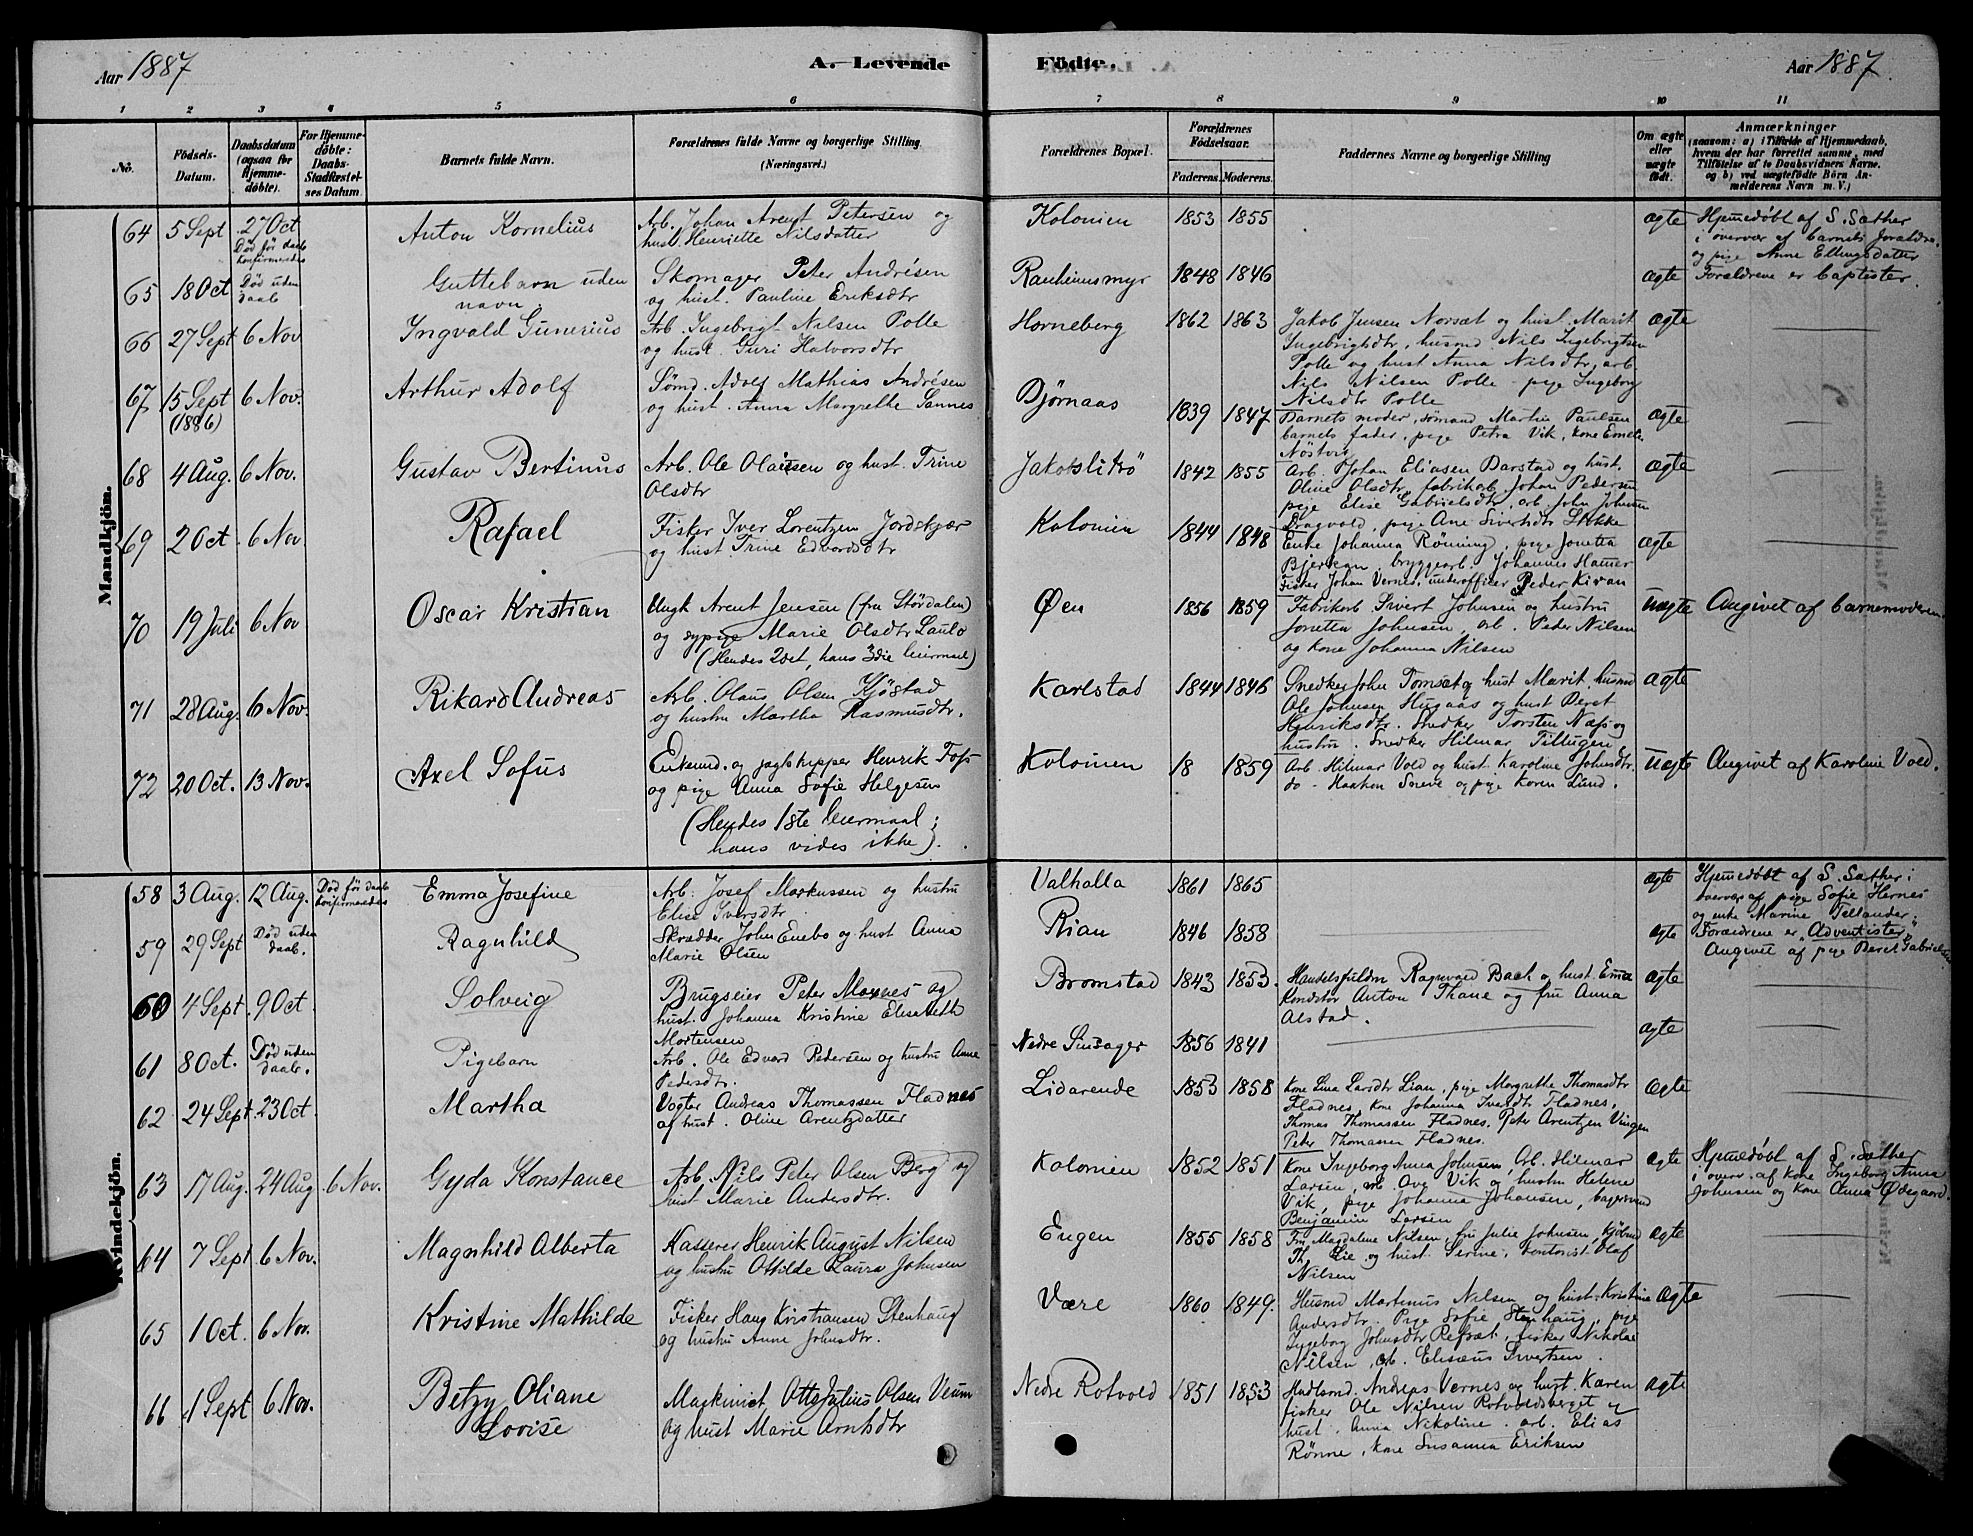 Aar 1887
A. Levende Födte.
Aar 1887.
1 2 3 4 5 6 7 8 9 10 11
No.
Födsels-Datum.
Daabsdatum (ogsaa for Hjemme-döbte).
For Hjemme-döbte: Daabs-Stadfæstel-ses Datum.
Barnets fulde Navn.
Forældrenes fulde Navne og borgerlige Stilling. (Næringsvei.)
Forældrenes Bopæl.
Forældrenes Födselsaar.
Faderens. Moderens.
Faddernes Navne og borgerlige Stilling
Om ægte eller uægte födt.
Anmærkninger
(saasom: a) i Tilfælde af Hjemmedaab, hvem der har forrettet samme, med Tilföielse af to Daabsvidners Navne, og b) ved uægtefödte Börn An-melderens Navn m. V.)
Mandkjön.
64 5 Sept 27 Oct Død før daab konfirmeredes
Anton Kornelius
Arb. Johan Arent Petersen og
hust. Henriette Nilsdatter
Kolonien 1853 1855
ægte
Hjemedøbt af S. Sæther
i overvær af barnets forældre
og pige Anne Ellingsdatter
65 18 Oct Død uden daab
Guttebarn uden
navn.
Skomager Peter Andrésen
og hust. Pauline Eriksdtr
Ranheimsmyr 1848 1846
ægte
Forældrene er baptister.
66 27 Sept 6 Nov
Ingvald Gunerius
Arb. Ingebrigt Nilsen Polle
og hust. Guri Halvorsdtr
Horneberg 1862 1863
Jakob Jensen Norsæt og hust. Marit
Ingebrigtsdtr, husmd Nils Ingebrigtsen
Polle og hust Anna Nilsdtr, arb.
Nils Nilsen Polle pige Ingeborg
Nilsdtr Polle
ægte
67 15 Sept (1886) 6 Nov.
Arthur Adolf
Sømd. Adolf Mathias Andrésen
og hust. Anna Margrethe Sannes
Bjørnaas 1839 1847
Barnets moder, sømand Martin Paulsen
barnets fader, pige Petra Vik, kone Emelie
ægte
68 4 Aug. 6 Nov.
Gustav Bertinus
Arb. Ole Olaisen og hust. Trine
Olsdtr
Jakobslitrø 1842 1855
Arb. Johan Eliasen Barstad og hust.
Oline Olsdtr, fabrikarb Johan Pedersen
pige Elise Gabrielsdtr, arb John Johnsen
Dragvold, pige Ane Sivertsdtr Stokke
ægte
69 2 Oct. 6 Nov
Rafael
Fisker Iver Lorentzen Jordskjær
og hust Trine Edvardsdtr
Kolonien 1844 1848
Enke Johanna Rønning, pige Jonetta
Bjerkan, bryggearb. Johannes Hamer
Fisker Johan Vernes, underofficer Peder Kiran
ægte
70 19 Juli 6 Nov
Oscar Kristian
Ungk Arent Jensen (fra Stördalen)
og sypige Marie Olsdtr Saulo
(Hendes 2det, hans 3die leiermaal)
Øen 1856 1859
Fabrikarb Sivert Johnsen og hustru
Jonetta Johnsen, arb. Peder Nilsen
og kone Johanna Nilsen
Uægte
Angivet af barnemoderen
71 28 Aug. 6 Nov.
Rikard Andreas
Arb. Olaus Olsen Kjøstad
og hustru Martha Rasmusdtr.
Karlstad 1844 1846
Snedker John Tomset og hust Marit, husmd
Ole Johnsen Hugaas og hust Beret
Henriksdtr. Snedker Torsten Næss og
hustru. Snedker Hilmar Tillugen
ægte
72 20 Oct. 13 Nov.
Axel Sofus
Enkemd. og jagtskipper Henrik Foss
og pige Anna Sofie Helgesen
(Hendes 1ste leiermaal;
hans vides ikke).
Kolonien 18 1859
Arb Hilmar Vold og hust Karoline Johnsdtr.
do Haaken Sneve og pige Karen Lund.
Uægte
Angivet af Karoline Vold.
Kvindekjön.
58 3 Aug. 12 Aug. Død før daab konfirmeredes
Emma Josefine
Arb. Josef Markussen og hustru
Elise Iversdtr
Valhalla 1861 1865
ægte
Hjemedøbt af S. Sæther i
overvær af pige Sofie Hernes
og enke Marine Tellander.
59 29 Sept Død uden daab.
Ragnhild
Skrædder John Enebo og hust Anna
Marie Olsen
Rian 1846 1858
ægte
Forældrene er "Adventister"
Angivet af pige Beret Gabrielsen
60 4 Sept. 9 Oct.
Solveig
Brugseier Peter Moxnes og
hust. Johanna Kristine Elisabeth
Mortensen
Bromstad 1843 1853.
Handelsfuldm Ragnvald Bach og hust. Emma
Kondstor Anton Thane og fru Anna
Alstad.
ægte
61 8 Oct. Død uden daab.
Pigebarn
Arb. Ole Edvard Pedersen og hustru Anne
Pedersdtr.
Nedre Sinsager 1856 1841
ægte
62 24 Sept 23 Oct
Martha
Vogter Andreas Thomassen Fladnes
af hust. Oline Arentzdatter
Lidarende 1853 1858
Kone Lina Larsdtr Lian, pige Margrethe Thomasdtr
Fladnes, kone Johanna Iversdtr Fladnes,
Thomas Thomassen Fladnes, Peter Arentzen Vingen
Peter Thomassen Fladnes.
ægte
63 17 Aug. 24 Aug 6 Nov.
Gyda Konstance
Arb. Nils Peter Olsen Berg og
hust Marie Andersdtr.
Kolonien 1852 1851
Kone Ingeborg Anna Johnsen, Arb. Hilmar
Larsen, arb. Ove Vik og hustru Helene
Vik, pige Johanna Johansen, bagersvend
Benjamin Larsen
ægte
Hjemedøbt af S. Sæther
i overv. af kone Ingeborg Anna
Johnsen og kone Anna Ødegaard.
64 7 Sept 6 Nov.
Magnhild Alberta
Kasserer Henrik August Nilsen
og hustru Ottilde Laura Johnsen
Engen 1855 1858
Fru Magdalene Nilsen, fru Julie Johnsen, Kjøbmd
Th. Lie og hust. Serine, Kontorist Olaf
Nilsen
ægte
65 1 Oct. 6 Nov.
Kristine Mathilde
Fisker Hans Kristiansen Stenhaug
og hustru Anne Johnsdtr.
Være 1860 1849.
Husmd Martinus Nilsen og hust. Kristine
Andersdtr. Pige Sofie Stenhaug, pige
Ingeborg Johnsdtr Refsæt, fisker Nikolai
Nilsen, arb. Elisæus Sivertsen.
ægte
66 1 Sept 6 Nov.
Betzy Oliane
Lovise
Maskinist Otto Julius Olsen Veum
og hust Marie Arntsdtr
Nedre Rotvold 1851 1853
Hudlsmd. Andreas Vernes og hust. Karen
fisker Ole Nilsen Rotvoldsberget og
hust. Anna Nikoline, arb. Elias
Rønne, kone Susanna Eriksen
ægte